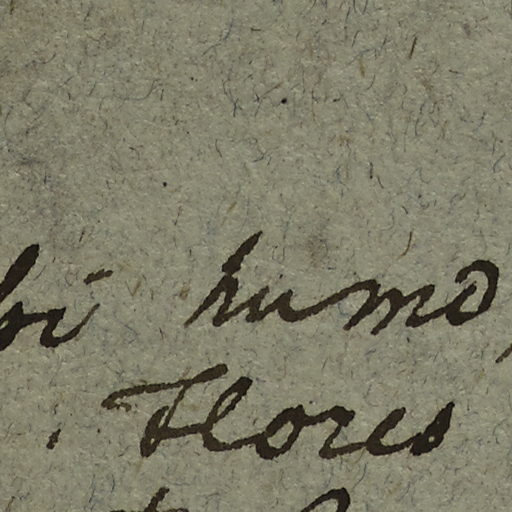 bi humo,
. Flores